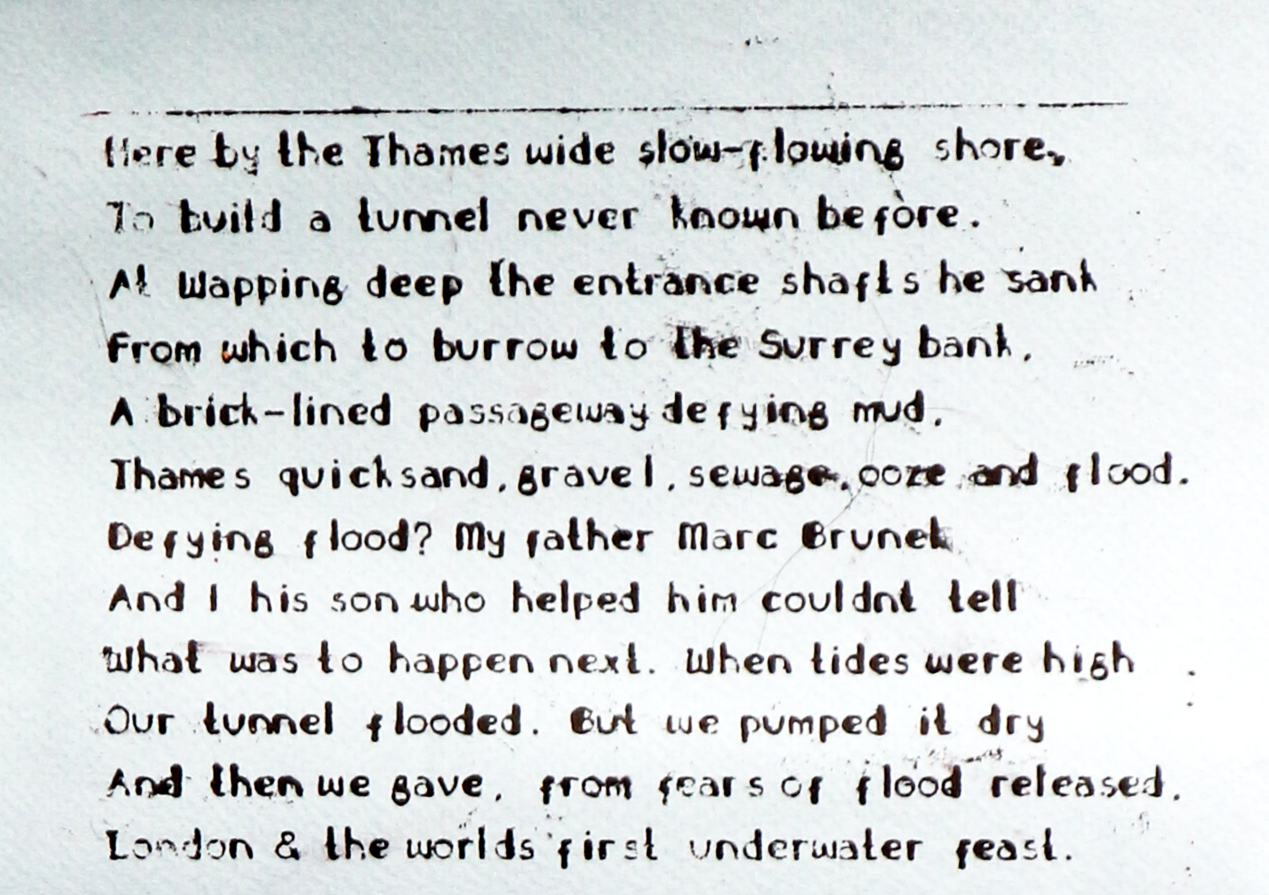 Here by the Thames wide slow-flowing shore,
To build a tunnel never known before.
At Wapping deep the entrance shafts he sank
From which to burrow to the Surrey bank,
A brick-lined passageway defying mud,
Thames quicksand, gravel, sewage, ooze and flood.
Defying flood? My father Marc Brunel
And I his son who helped him couldnt tell
What was to happen next. When tides were high
Our tunnel flooded. But we pumped it dry
And then we gave, from fears of flood released,
London & the worlds first underwater feast.